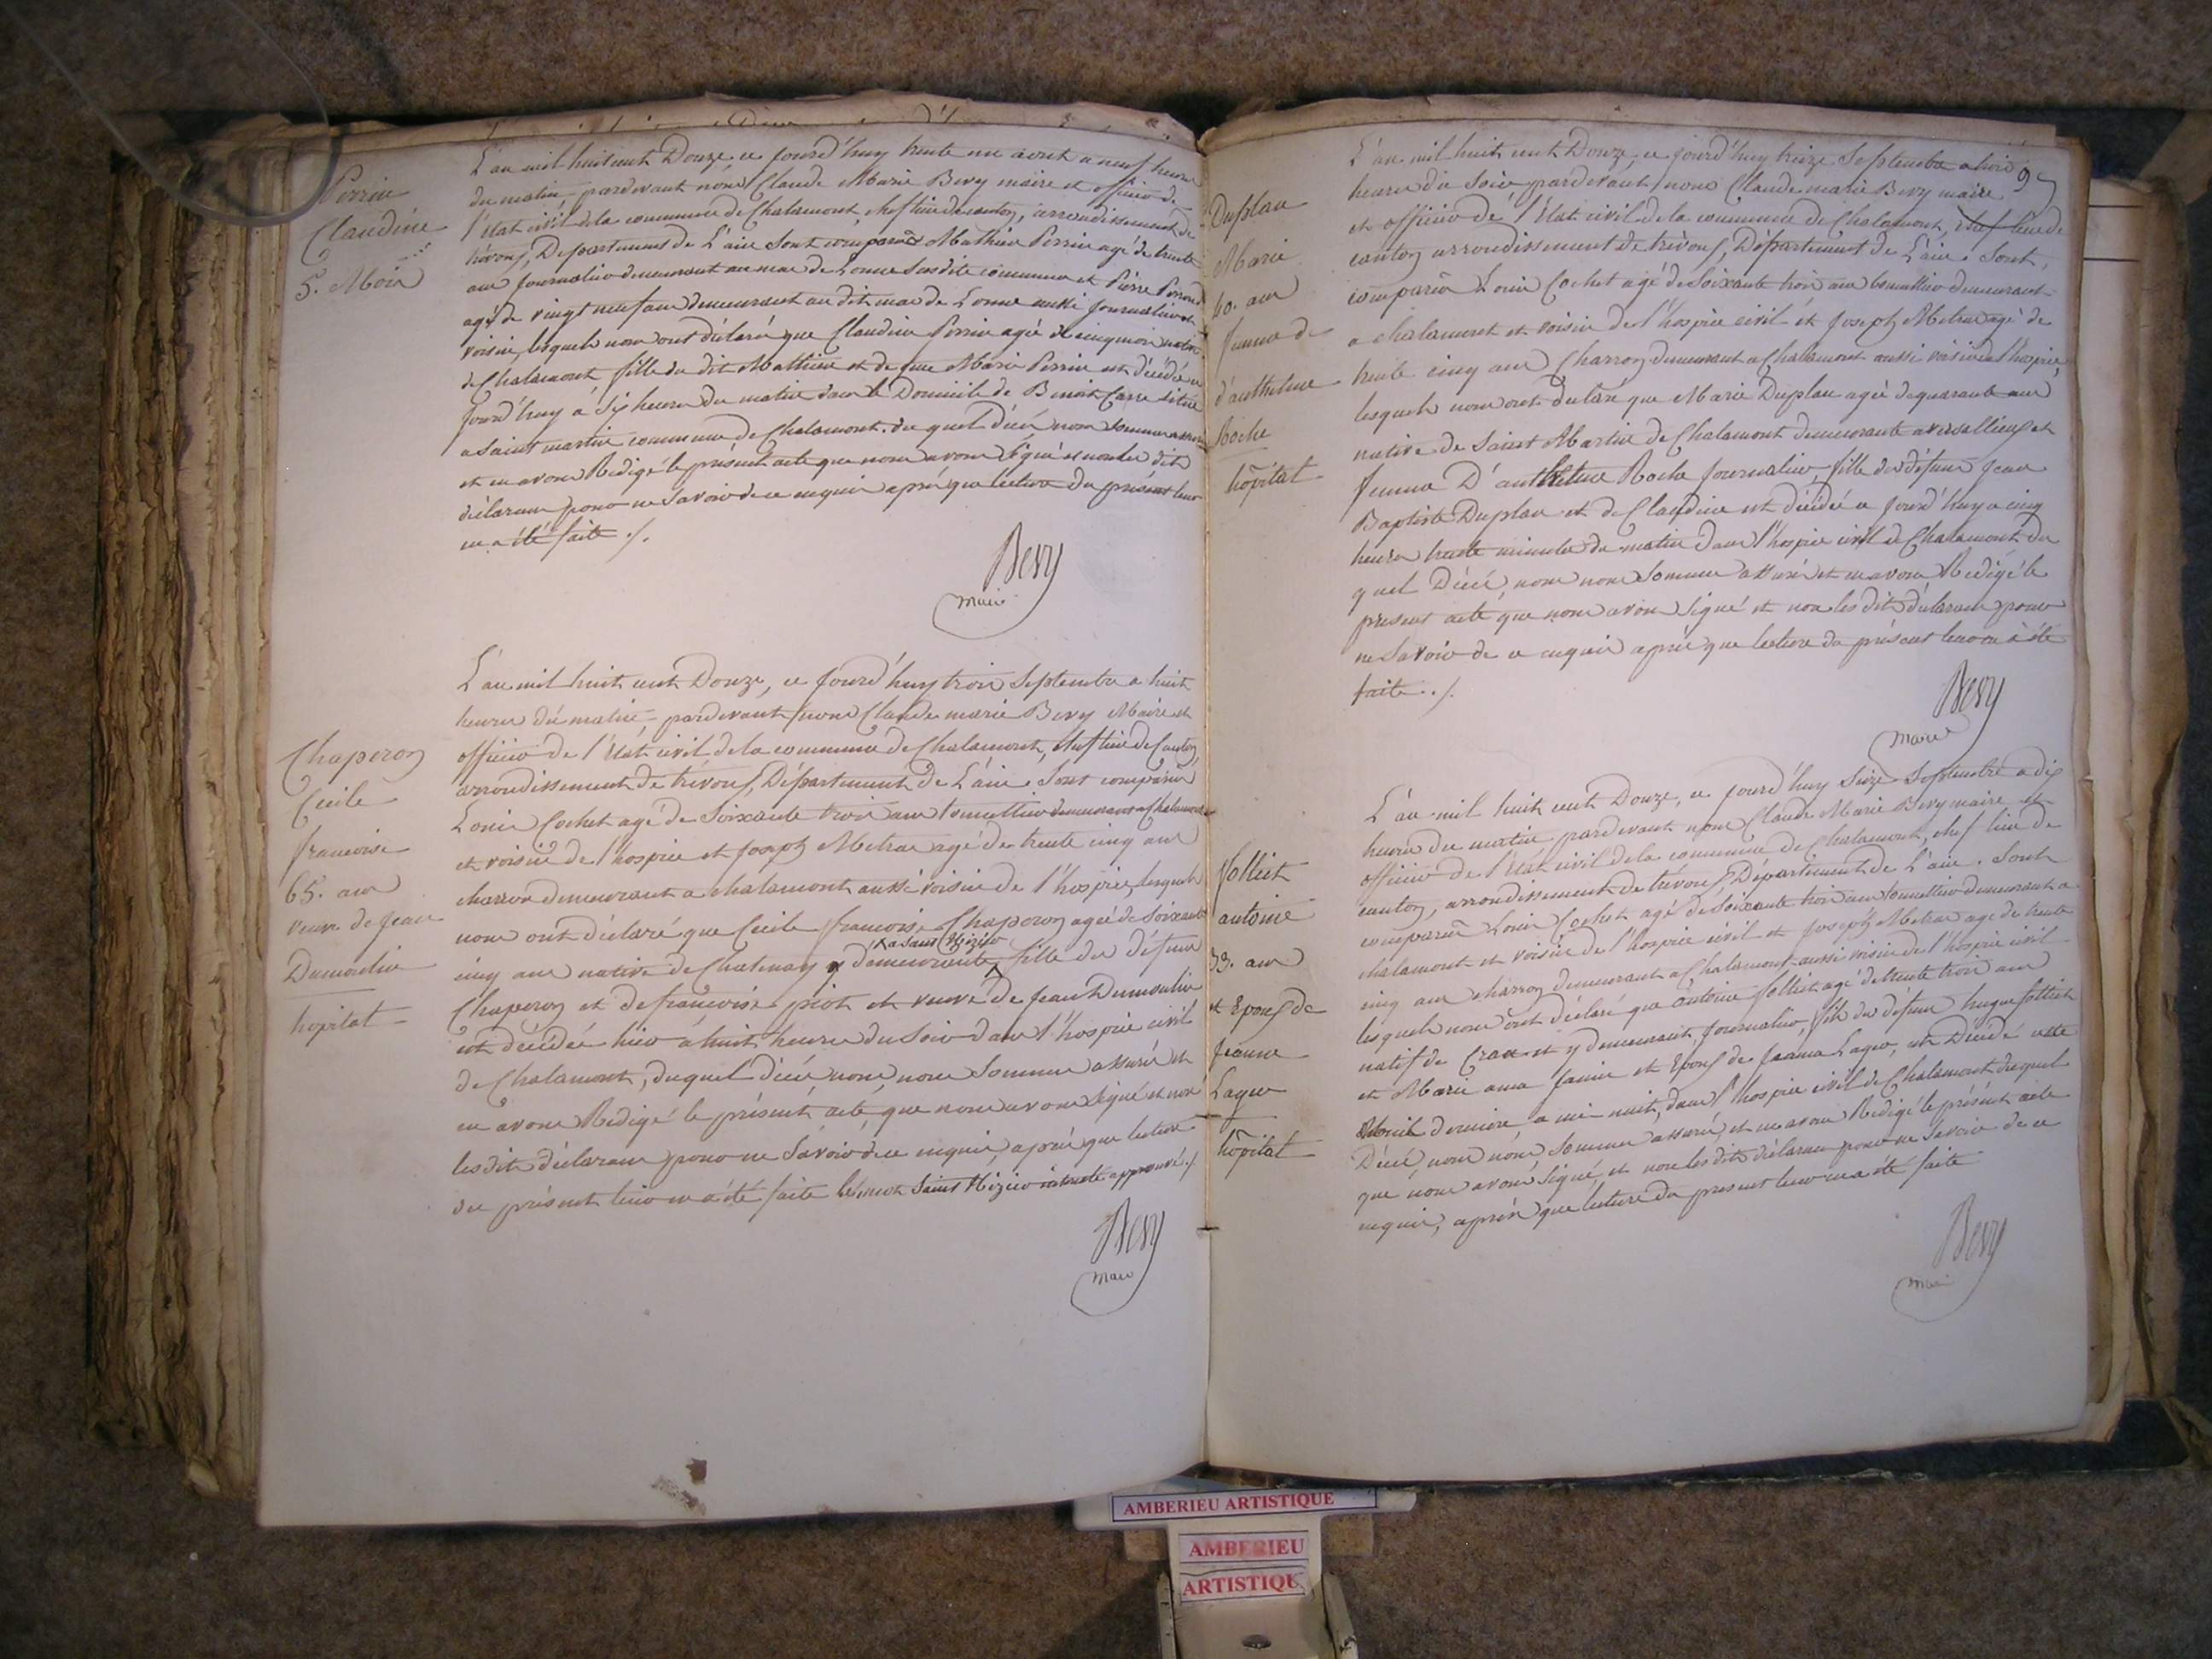 Perrin
Claudine
5. Mois
L'an mil huit cent Douze, ce jourd'huy trente un aout a neuf heures
du matin, pardevant nous Claude Marie Bevy maire et officier de
l'état civil de la commune de Chalamont, chef lieu de canton, arrondissement de
trévoux, Département de L'ain sont comparus Mathieu Perrin agé de trente
ans journalier demeurant au mas de Lonne susdite commune et Pierre
agé de vingt neuf ans demeurant au dit mas de Lonne aussi journalier et
voisin, lesquels nous ont déclaré que Claudine Perrin agée de cinq mois native
de Chalamont, fille du dit Mathieu et de Marie Perrin est décédée ce
jourd'huy a six heures du matin dans le Domicile de Benoit Carre situé
a Saint martin commune de Chalamont. du quel décés nous sommes assurés
et en avons Redigé le présent acte que nous avons signé et non les dits
déclarans pour ne savoir de ce enquis aprés que lecture du présent leur
en a été faite ./.
Bevy
maire
Chaperon
Cecile
francoise
65. ans
veuve de Jean
Dumoulin
hopital
L'an mil huit cent Douze, ce jourd'huy trois Septembre a huit
heures du matin, pardevant nous Claude marie Bevy Maire et
officier de l'Etat civil de la commune de Chalamont, chef lieu de Canton
arrondissement de trévoux, Département de L'ain. Sont comparus
Louis Cochet agé de Soixante trois ans demeurant a Chalamont
et voisin de l'hospice et Joseph Metras agé de trente cinq ans
charron demeurant a chalamont aussi voisin de l'hospice, lesquels
nous ont déclaré que Cecile francoise Chaperon agée de Soixante
a Saint Nizier
cinq ans native de Chatenay y demeurante, fille du défunt
Chaperon et de francoise piot et veuve de Jean Dumoulin
est décédée hier a huit heures du Soir dans l'hospice civil
de Chalamont, duquel décés nous nous Sommes assurés et
en avons Redigé le présent acte, que nous avons Signé et non
les dits déclarans pour ne Savoir de ce enquis, aprés que lecture
du présent leur en a été faite le mot Saint Nizier approuvé ./.
Bevy
maire
Duplan
Marie
40. ans
femme de
d'anthelme
Roche
hôpital
L'an mil huit cent Douze, ce jourd'huy treize Septembre a trois
heures du Soir pardevant nous Claude marie Bevy maire
et officier de l'Etat civil de la commune de Chalamont, chef lieu de
canton arrondissement de trévoux, Département de L'ain. Sont
comparus Louis Cochet agé de Soixante trois ans demeurant
a chalamont et voisin de l'hospice civil et Joseph Metras agé de
trente cinq ans Charron demeurant a Chalamont aussi voisin de l'hospice,
lesquels nous ont déclaré que Marie Duplan agée de quarante ans
native de Saint Martin de Chalamont demeurante a versailleux et
femme D'anthelme Roche journalier, fille des défunts Jean
Baptiste Duplan et de Claudine est décédée ce jourd'huy a cinq
heures trente minutes du matin dans l'hospice civil de Chalamont du
quel Décés, nous nous Sommes assurés et en avons Redigé le
présent acte que nous avons Signé et non les dits déclarans pour
ne Savoir de ce enquis aprés que lecture du présent leur en a été
faite ./.
Bevy
Maire
folliet
antoine
33. ans
et Epoux de
Jeanne
Lager
hôpital
L'an mil huit cent Douze, ce jourd'huy Seize Septembre a dix
heures du matin pardevant nous Claude Marie Bevy maire et
officier de l'Etat civil de la commune de Chalamont, chef lieu de
canton, arrondissement de trévoux, Département de L'ain. Sont
comparus Louis Cochet agé de Soixante trois ans demeurant a
chalamont et voisin de l'hospice civil et Joseph Metras agé de trente
cinq ans charron demeurant a Chalamont aussi voisin de l'hospice civil
lesquels nous ont déclaré que antoine folliet agé de trente trois ans
natif de Crans et y demeurant, journalier, fils du défunt hugue folliet
et Marie anna et Epoux de Jeanne Lager, est Décédé cette
nuit derniere a mi-nuit, dans l'hospice civil de Chalamont duquel
Décés, nous nous Sommes assurés, et en avons Redigé le présent acte
que nous avons Signé, et non les dits déclarans pour ne Savoir de ce
enquis, aprés que lecture du present leur en a été faite
Bevy
maire
AMBERIEU ARTISTIQUE
AMBERIEU
ARTISTIQUE